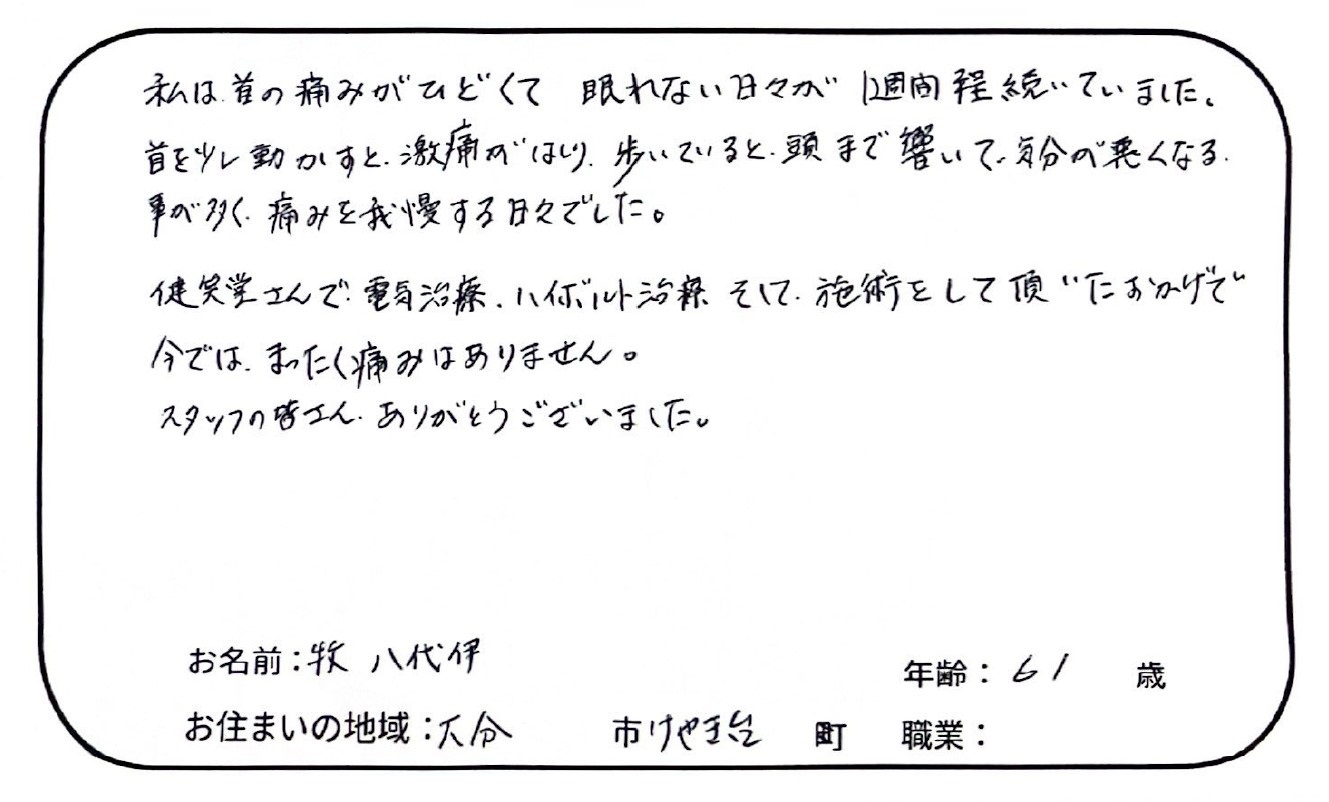 私は首の痛みがひどくて 眠れない日々が 1週間程続いていました。
首を少し動かすと、激痛がはしり、歩いていると、頭まで響いて、気分が悪くなる
事が多く、痛みを我慢する日々でした。
健笑堂さんで、電気治療、ハイボルト治療 そして、施術をして頂いたおかげで
今では、まったく痛みはありません。
スタッフの皆さん、ありがとうございました。
お名前：牧 八代伊
年齢：61 歳
お住まいの地域：大分 市けやき台 町
職業：